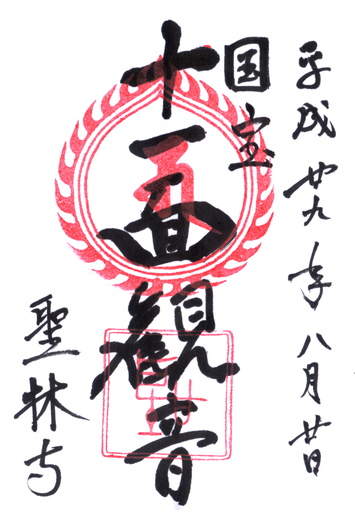 平成廿九年八月廿日
国宝
十一面観音
聖林寺